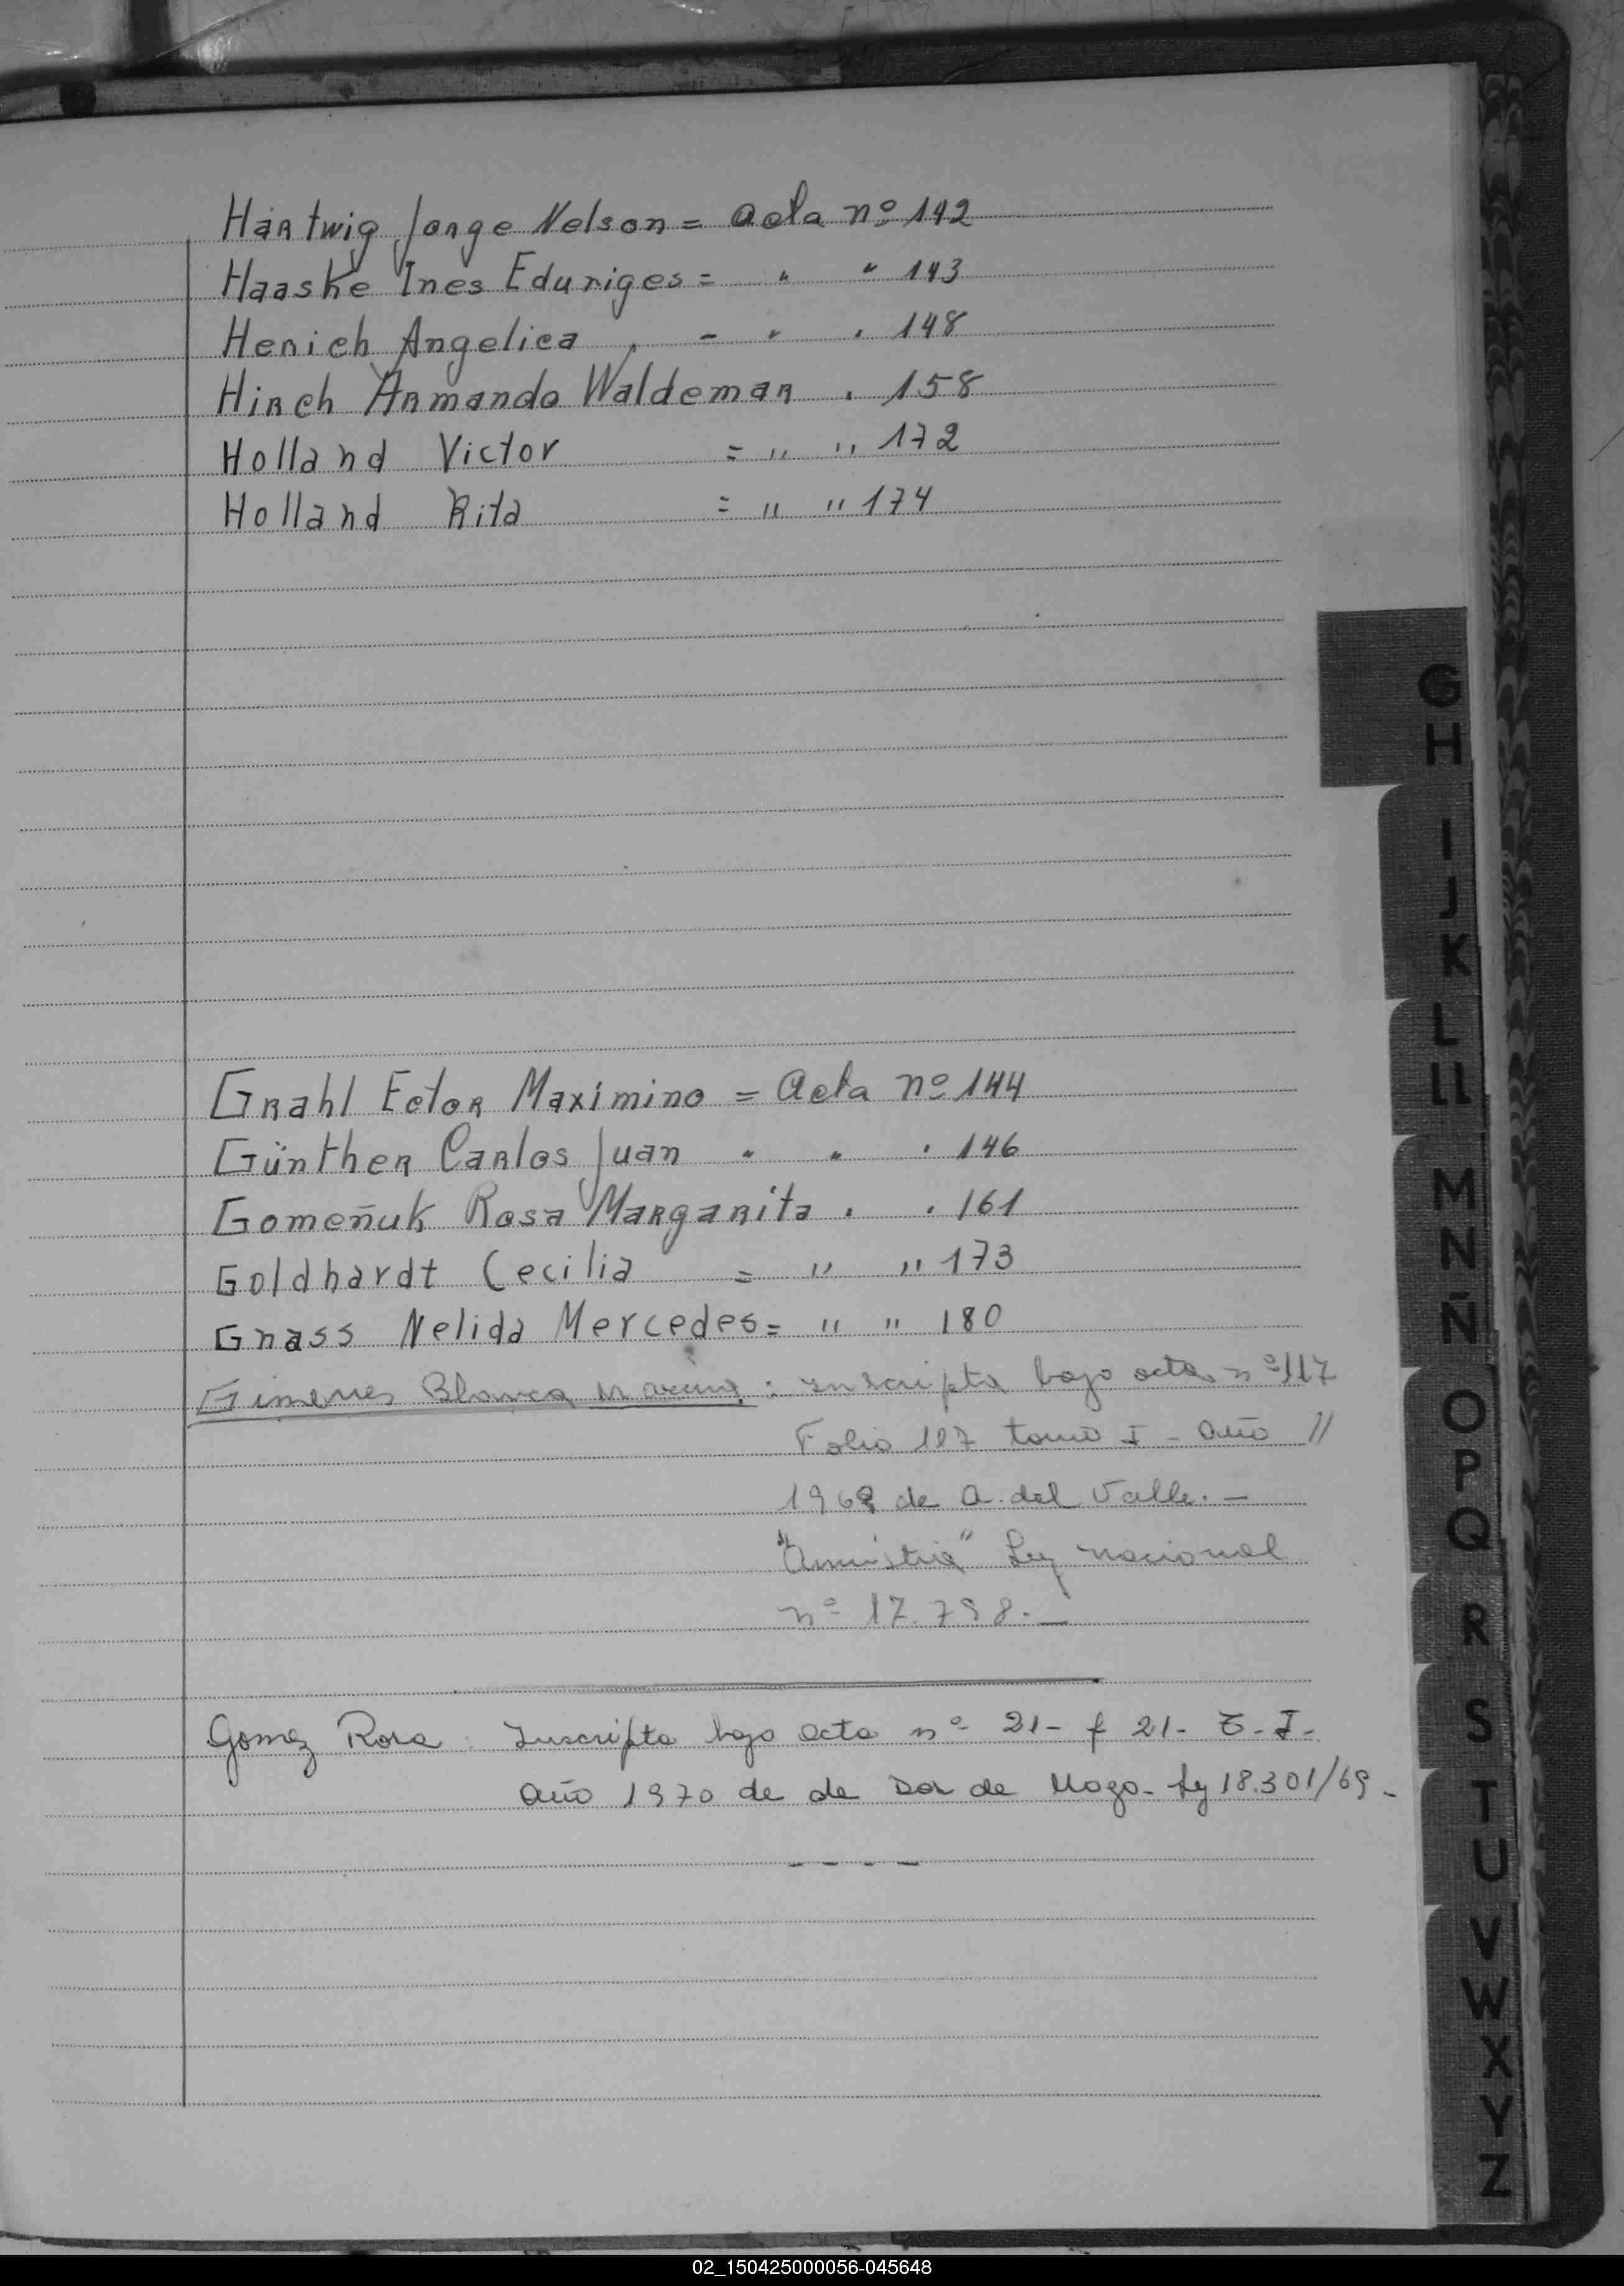 Hartwig Jorge Nelson = acta nº 142
Haaske Ines Eduriges = " " 143
Henich Angelica - " " 148
Hirch Armando Waldemar . 158
Holland Victor = " " 172
Holland Rita = " " 174
Grahl Ector Maximino = acta nº 144
Günther Carlos Juan " " " 146
Gomeñuk Rosa Margarita . . 161
Goldhardt Cecilia = " " 173
Gnass Nelida Mercedes = " " 180
Gimenes Blanca : inscripta bajo acta nº 117
Folio 117 tomo I - año //
1968 de A. del Valle. -
"Amnistia" Ley nacional
nº 17.798. -
Gomez Rosa : Inscripta bajo acta nº 21 - f 21 - T - I -
año 1970 de de Dos de Mayo - Ly 18.301/69 -
G
H
I
J
K
L
LL
M
N
Ñ
O
P
Q
R
S
T
U
V
W
X
Y
Z
02_150425000056-045648